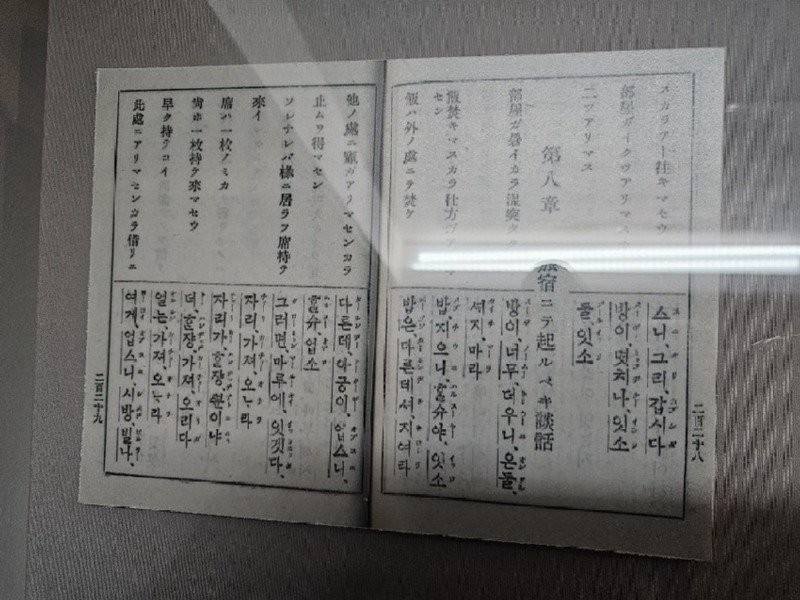 二百二十八
スカラアー往キマセウ
部屋ガイクツアリマス
二ツアリマス
스니、그리、갑시다
방이、몃치나、잇소
둘、잇소
第八章 旅宿ニテ起ルベキ談話
部屋ガ暑イカラ温突
飯焚キマスカラ仕方
セン
飯ハ外ノ處ニテ焚ケ
방이、너무、더우니、온돌、
셔지、마라
밥、지으니、할슈야、잇소
밥은、다른데셔、지여라
他ノ處ニ竈ガアリマセンカラ
止ムヲ得マセン
ソレナレバ様ニ居ラフ席持テ
來イ
席ハ一枚ノミカ
尚ホ一枚持テ來マセウ
早ク持テコイ
此處ニアリマセンカラ借リニ
다른데、아궁이、업스니、
할슈、업소
그러면、마루에、잇겟다、
자리、가져、오느라
자리가、한쟝、뿐이냐
더、한쟝、가져、오리다
얼는、가져、오느라
여게、업스니、시방、빌나、
二百二十九